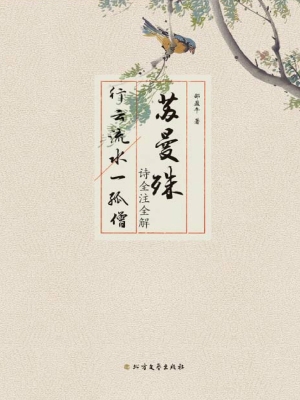 苏曼殊
诗全注全解
行云流水一孤僧
邵盈午 著
北方文艺出版社